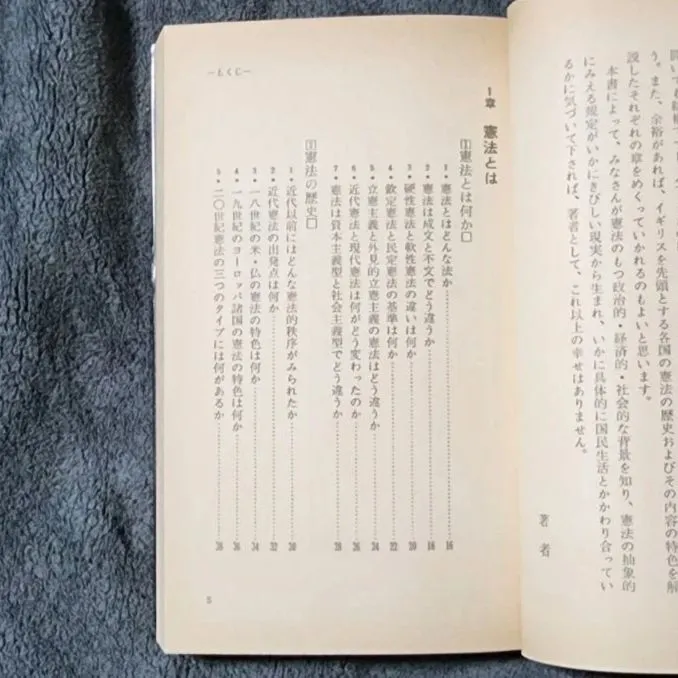 説したそれぞれの章をめくっていかれるのもよいと思います。
う。また、余裕があれば、イギリスを先頭とする各国の憲法の歴史およびその内容の特色を解
本書によって、みなさんが憲法のもつ政治的・経済的・社会的な背景を知り、憲法の抽象的
にみえる規定がいかにきびしい現実から生まれ、いかに具体的に国民生活とかかわり合ってい
るかに気づいて下されば、著者として、これ以上の幸せはありません。
著者
―もくじ―
1章 憲法とは
1憲法とは何か□
1・憲法とはどんな法か 16
2・憲法は成文と不文でどう違うか 18
3・硬性憲法と軟性憲法の違いは何か 20
4・欽定憲法と民定憲法の基準は何か 22
5・立憲主義と外見的立憲主義の憲法はどう違うか 24
6・近代憲法と現代憲法は何がどう変わったのか 26
7・憲法は資本主義型と社会主義型でどう違うか 28
2憲法の歴史□
1・近代以前にはどんな憲法的秩序がみられたか 30
2・近代憲法の出発点は何か 32
3・一八世紀の米・仏の憲法の特色は何か 34
4・一九世紀のヨーロッパ諸国の憲法の特色は何か 36
5・二〇世紀憲法の三つのタイプには何があるか 38
5